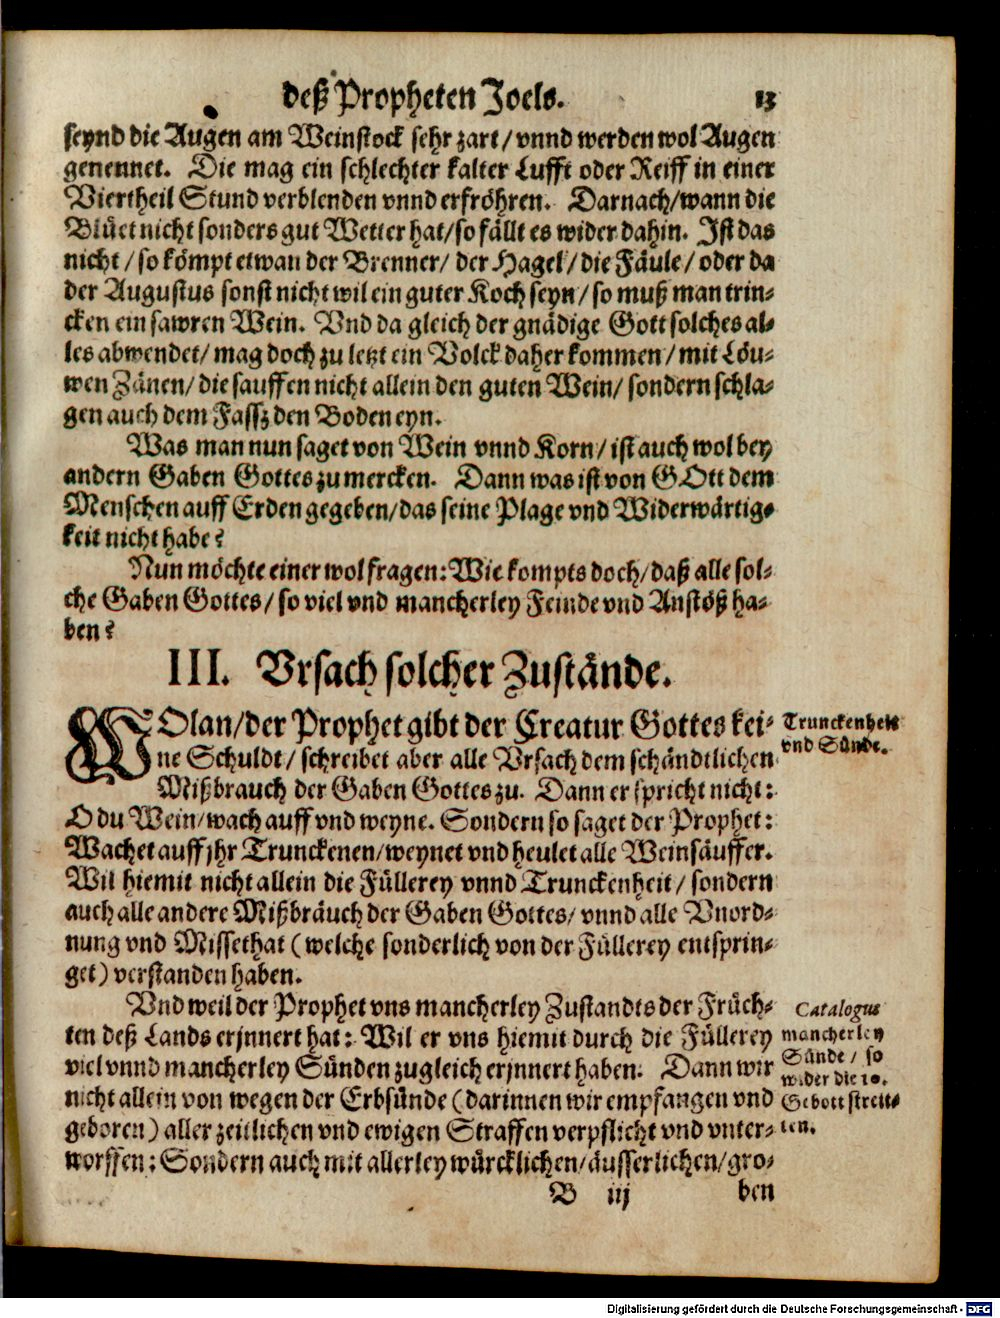 deß Propheten Joels. 13
seynd die Augen am Weinstock sehr zart/ vnnd werden wol Augen
genennet. Die mag ein schlechter kalter Lufft oder Reiff in einer
Viertheil Stund verblenden vnnd erfröhren. Darnach/ wann die
Blüet nicht sonders gut Wetter hat/ so fällt es wider dahin. Ist das
nicht/ so kömpt etwan der Brenner/ der Hagel/ die Fäule/ oder da
der Augustus sonst nicht wil ein guter Koch seyn/ so muß man trin-
cken ein sawren Wein. Vnd da gleich der gnädige Gott solches al-
les abwendet/ mag doch zu letzt ein Volck daher kommen/ mit Löu-
wen Zänen/ die sauffen nicht allein den guten Wein/ sondern schla-
gen auch dem Fassz den Boden eyn.
Was man nun saget von Wein vnnd Korn/ ist auch wol bey
andern Gaben Gottes zu mercken. Dann was ist von GOtt dem
Menschen auff Erden gegeben/ das seine Plage vnd Widerwärtig-
keit nicht habe?
Nun möchte einer wol fragen: Wie kompts doch/ daß alle sol-
che Gaben Gottes/ so viel vnd mancherley Feinde vnd Anstöß ha-
ben?
III. Vrsach solcher Zustände.
WOlan/ der Prophet gibt der Creatur Gottes kei-
ne Schuldt/ schreibet aber alle Vrsach dem schändtlichen
Mißbrauch der Gaben Gottes zu. Dann er spricht nicht:
O du Wein/ wach auff vnd weyne. Sondern so saget der Prophet:
Wachet auff jhr Trunckenen/ weynet vnd heulet alle Weinsäuffer.
Wil hiemit nicht allein die Füllerey vnnd Trunckenheit/ sondern
auch alle andere Mißbräuch der Gaben Gottes/ vnnd alle Vnord-
nung vnd Missethat (welche sonderlich von der Füllerey entsprin-
get) verstanden haben.
Trunckenheit
vnd Sünde.
Vnd weil der Prophet vns mancherley Zustandts der Früch-
ten deß Lands erjnnert hat: Wil er vns hiemit durch die Füllerey
viel vnnd mancherley Sünden zugleich erjnnert haben. Dann wir
nicht allein von wegen der Erbsünde (darinnen wir empfangen vnd
geboren) aller zeitlichen vnd ewigen Straffen verpflicht vnd vnter-
worffen: Sondern auch mit allerley würcklichen/ äusserlichen/ gro-
Catalogus
mancherley
Sünde/ so
wider die 10.
Gebott streit-
ten.
B iij ben
Digitalisierung gefördert durch die Deutsche Forschungsgemeinschaft - DFG